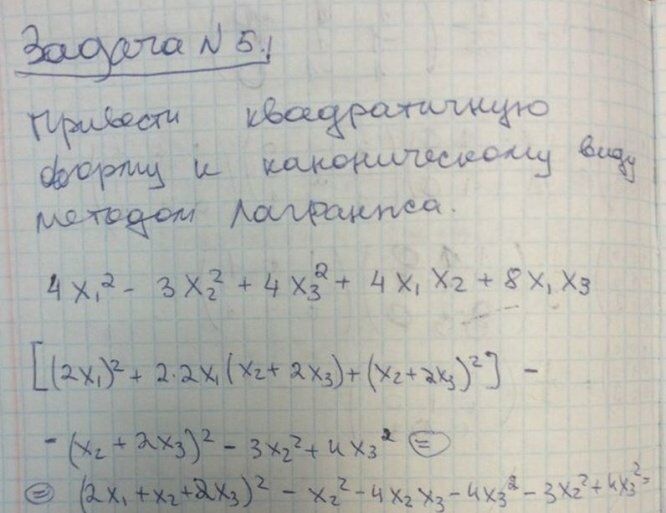 Задача N 5.1
Привести квадратичную
форму к каноническому виду
методом Лагранжа.
4x₁² - 3x₂² + 4x₃² + 4x₁x₂ + 8x₁x₃
[(2x₁)² + 2·2x₁(x₂ + 2x₃) + (x₂+2x₃)²] -
- (x₂ + 2x₃)² - 3x₂² + 4x₃² =
= (2x₁ + x₂ + 2x₃)² - x₂² - 4x₂x₃ - 4x₃² - 3x₂² + 4x₃² =